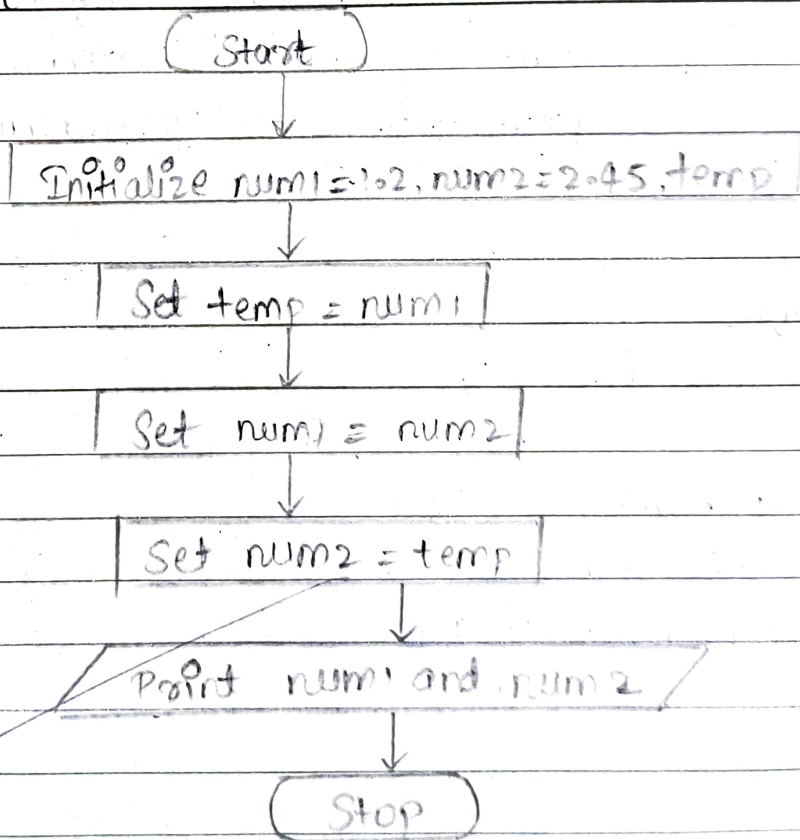 Start
Initialize num1=1.2, num2=2.45, temp
Set temp = num1
Set num1 = num2
Set num2 = temp
Print num1 and num2
Stop